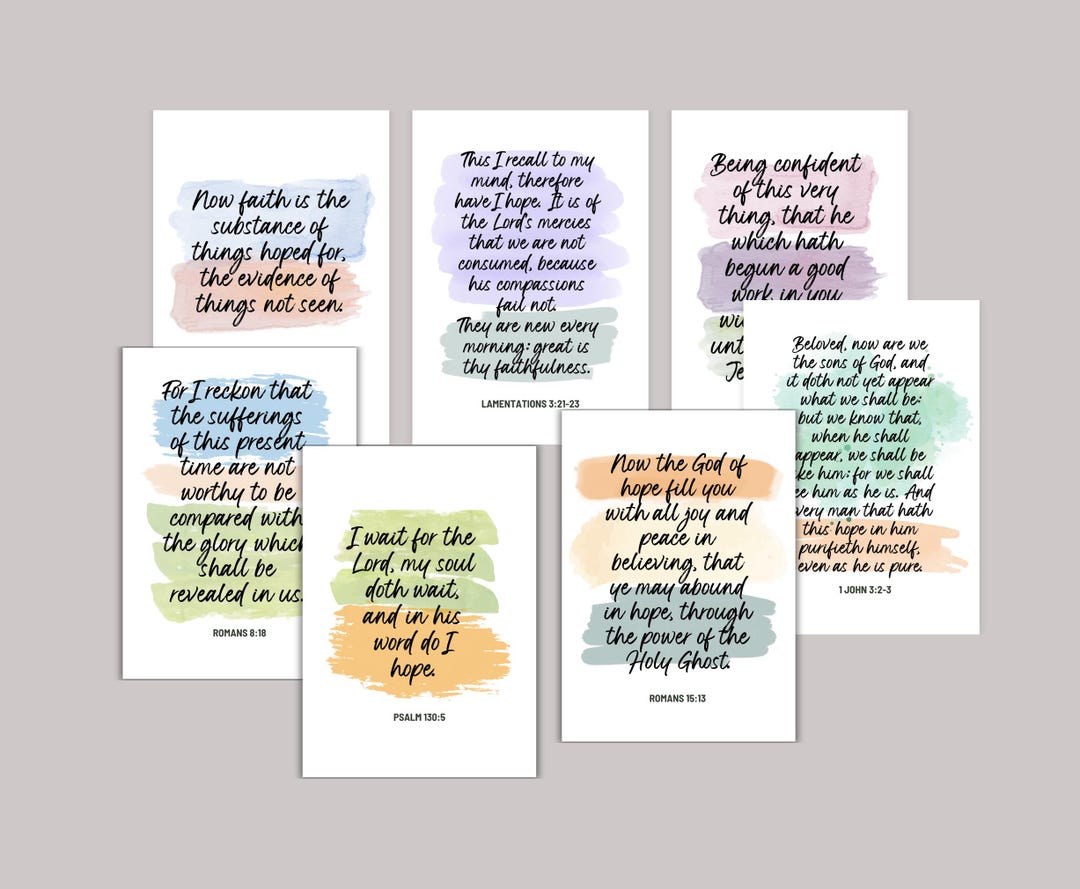 Now faith is the
substance of
things hoped for,
the evidence of
things not seen.
This I recall to my
mind, therefore
have I hope. It is of
the Lord's mercies
that we are not
consumed, because
his compassions
fail not.
They are new every
morning: great is
thy faithfulness.
LAMENTATIONS 3:21-23
Being confident
of this very
thing, that he
which hath
begun a good
work in you
wi
unt
Je
For I reckon that
the sufferings
of this present
time are not
worthy to be
compared with
the glory which
shall be
revealed in us.
ROMANS 8:18
I wait for the
Lord, my soul
doth wait,
and in his
word do I
hope.
PSALM 130:5
Now the God of
hope fill you
with all joy and
peace in
believing, that
ye may abound
in hope, through
the power of the
Holy Ghost.
ROMANS 15:13
Beloved, now are we
the sons of God, and
it doth not yet appear
what we shall be:
but we know that,
when he shall
appear, we shall be
ke him: for we shall
ee him as he is. And
very man that hath
this hope in him
purifieth himself,
even as he is pure.
1 JOHN 3:2-3